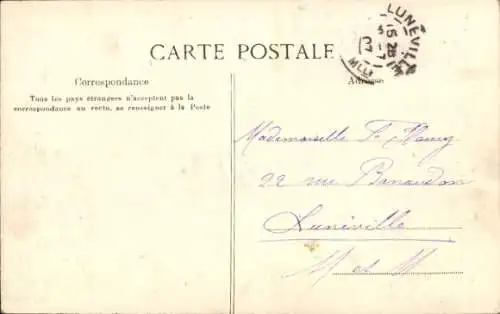 CARTE POSTALE
LUNÉVILLE
15 28
07
Correspondance
Tous les pays étrangers n'acceptent pas la
correspondance au recto, se renseigner à la Poste
Adresse
Mademoiselle
22 rue Banaudon
Lunéville
M et M